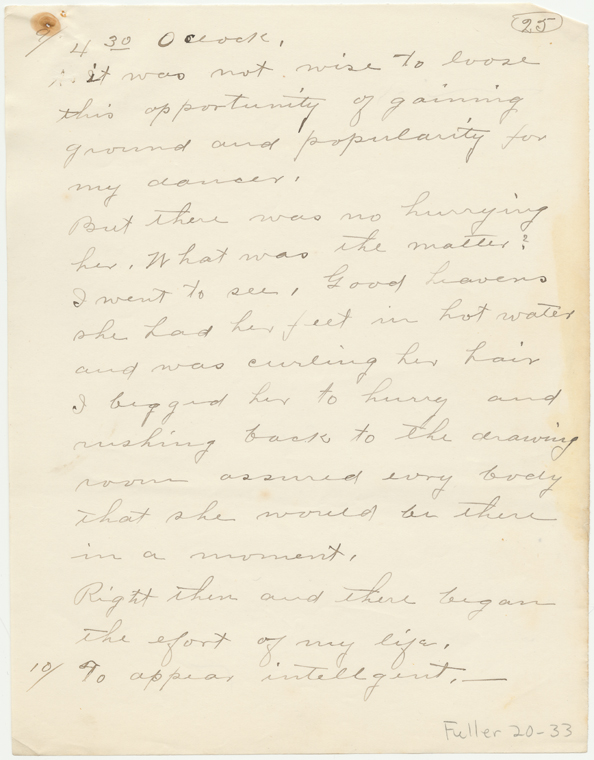 25
9/ 4 30 Oclock.
it was not wise to loose
this opportunity of gaining
ground and popularity for
my dancer.
But there was no hurrying
her. What was the matter?
I went to see. Good heavens
she had her feet in hot water
and was curling her hair
I begged her to hurry and
rushing back to the drawing
room assured evry body
that she would be there
in a moment.
Right then and there began
the efort of my life.
10/ To appear intellgent.—
Fuller 20-33